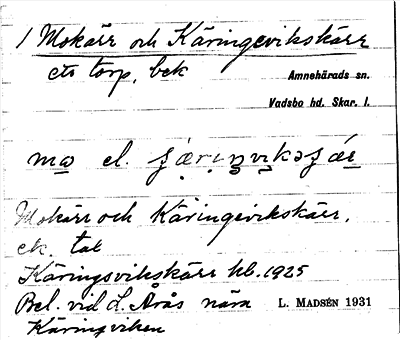 1 Mokärr och Käringevikskärr
ett torp, bek
Amnehärads sn.
Vadsbo hd. Skar. l.
el.
Mokärr och Käringevikskärr,
ek. tal
Käringsvikskärr hb. 1925
Bel. vid L. Årås nära
Käringviken
L. MADSÉN 1931